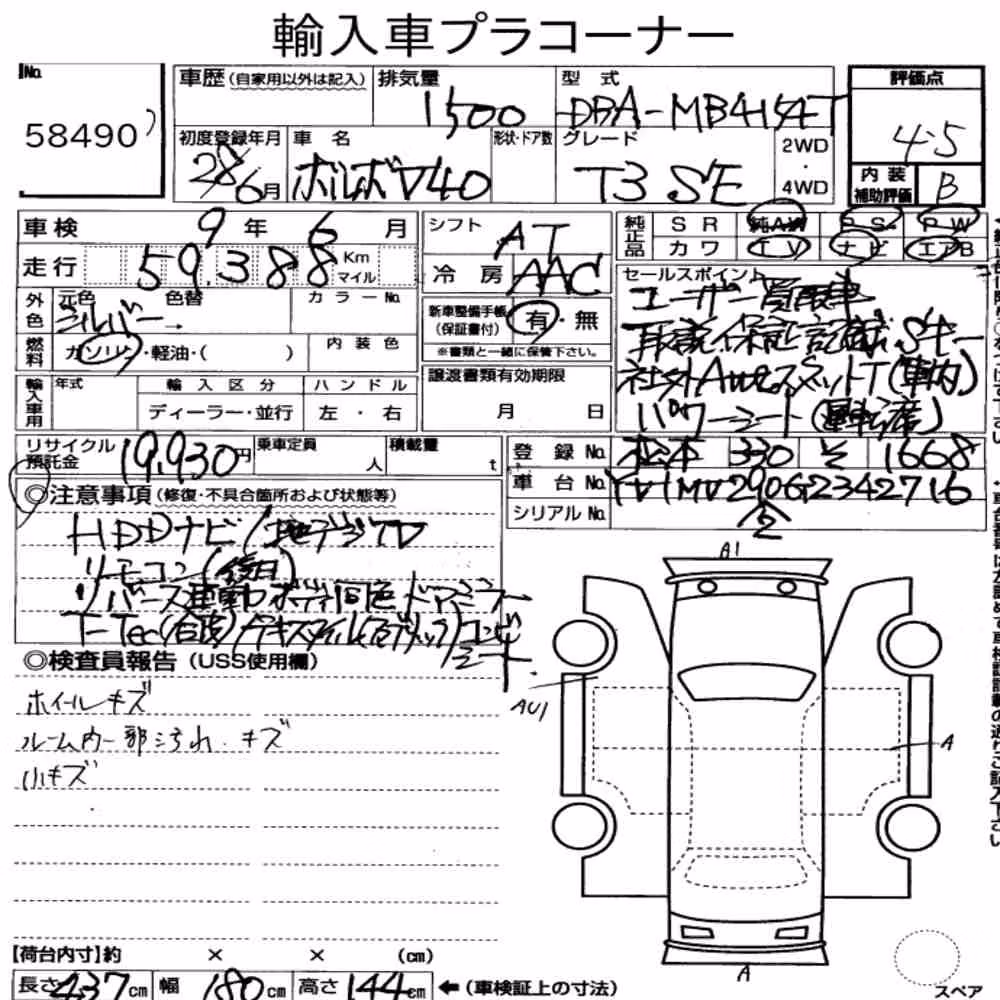 輸入車プラコーナー
No. 58490
車歴（自家用以外は記入） 排気量 1500 型式 DBA-MB4154T
評価点 4.5
初度登録年月 28/6月 車名 ボルボV40 形状・ドア数 グレード T3 SE 2WD・4WD
内装補助評価 B
車検 9年6月 シフト AT
純正品 SR 純AW P.S. P.W
カワ TV ナビ エアB
走行 59,388 Km マイル 冷房 AAC
セールスポイント
ユーザー買取車
取説 保証記録 Sキー
社外Aw2スペットT（車内）
パワーシート（運転席）
外色 元色 シルバー 色替 カラーNo.
新車整備手帳（保証書付） 有・無
※書類と一緒に保備下さい。
燃料 ガソリン・軽油・（ ） 内装色
輸入車用 年式 輸入区分 ハンドル
ディーラー・並行 左・右
譲渡書類有効期限 月 日
リサイクル預託金 19,930円 乗車定員 人 積載量 t
登録No. 松本 330 そ 1668
車台No. YV1MV2906G2342716
シリアルNo. 2
◎注意事項（修復・不具合箇所および状態等）
HDDナビ/地デジTV
リモコン（後日）
リバース連動 ボディ同色ドアミラー
T-Tec（合皮）/テキスタイル（ファブリック）コンビ
シート
◎検査員報告（USS使用欄）
ホイールキズ
ルーム内一部汚れ・キズ
小キズ
A1
AU1
A
A
スペア
【荷台内寸】約 × × （cm）
長さ 437cm 幅 180cm 高さ 144cm ←（車検証上の寸法）